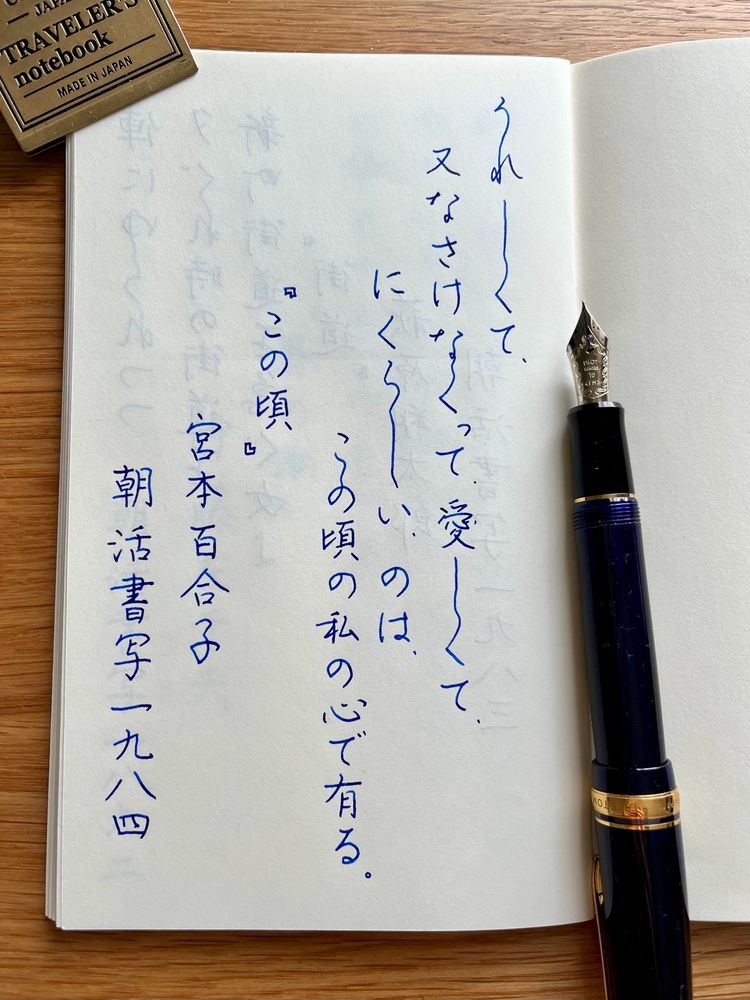 うれしくて、
又なさけなくって、愛しくて、
にくらしい、のは、
この頃の私の心で有る。
『この頃』
宮本百合子
朝活書写一九八四
TRAVELER'S
notebook
MADE IN JAPAN